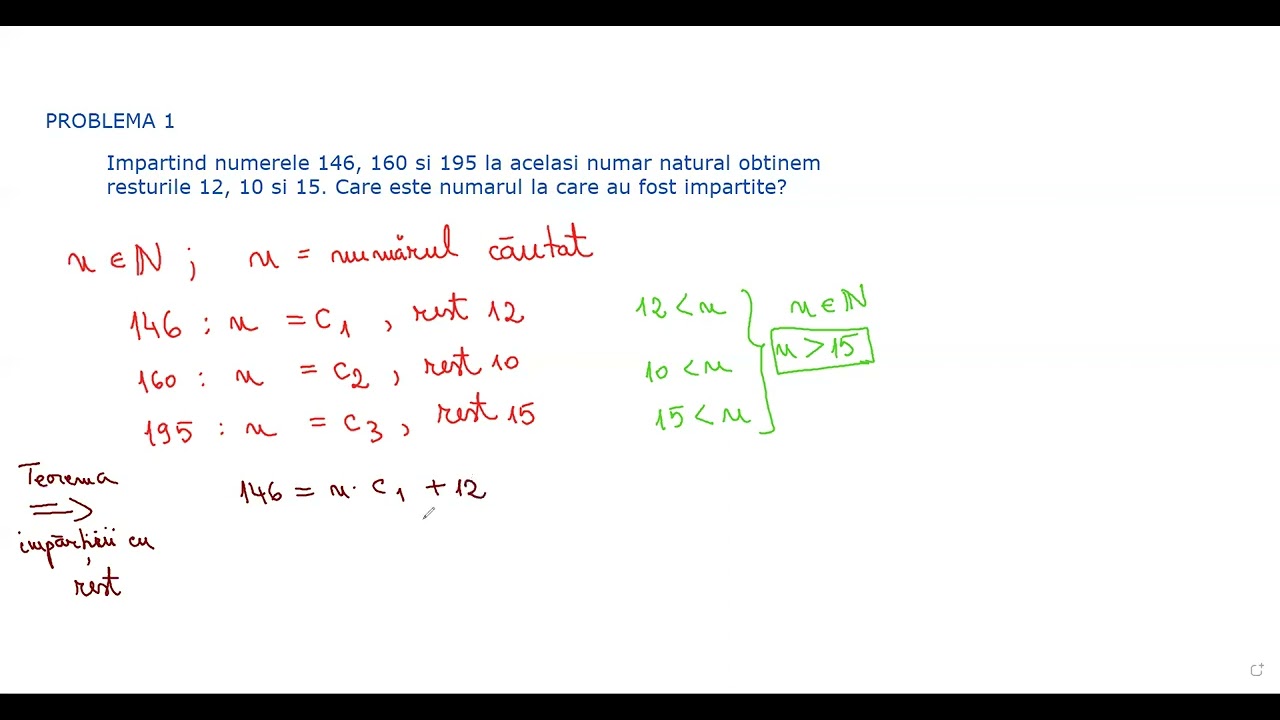 PROBLEMA 1
Impartind numerele 146, 160 si 195 la acelasi numar natural obtinem
resturile 12, 10 si 15. Care este numarul la care au fost impartite?
n ∈ ℕ ; n = numărul căutat
146 : n = C1 , rest 12
160 : n = C2 , rest 10
195 : n = C3 , rest 15
12 < n
10 < n
15 < n
n ∈ ℕ
n > 15
Teorema
⇒
împărțirii cu
rest
146 = n · C1 + 12